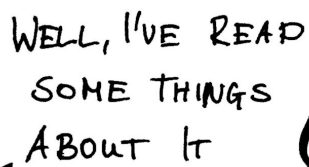 WELL, I'VE READ
SOME THINGS
ABOUT IT